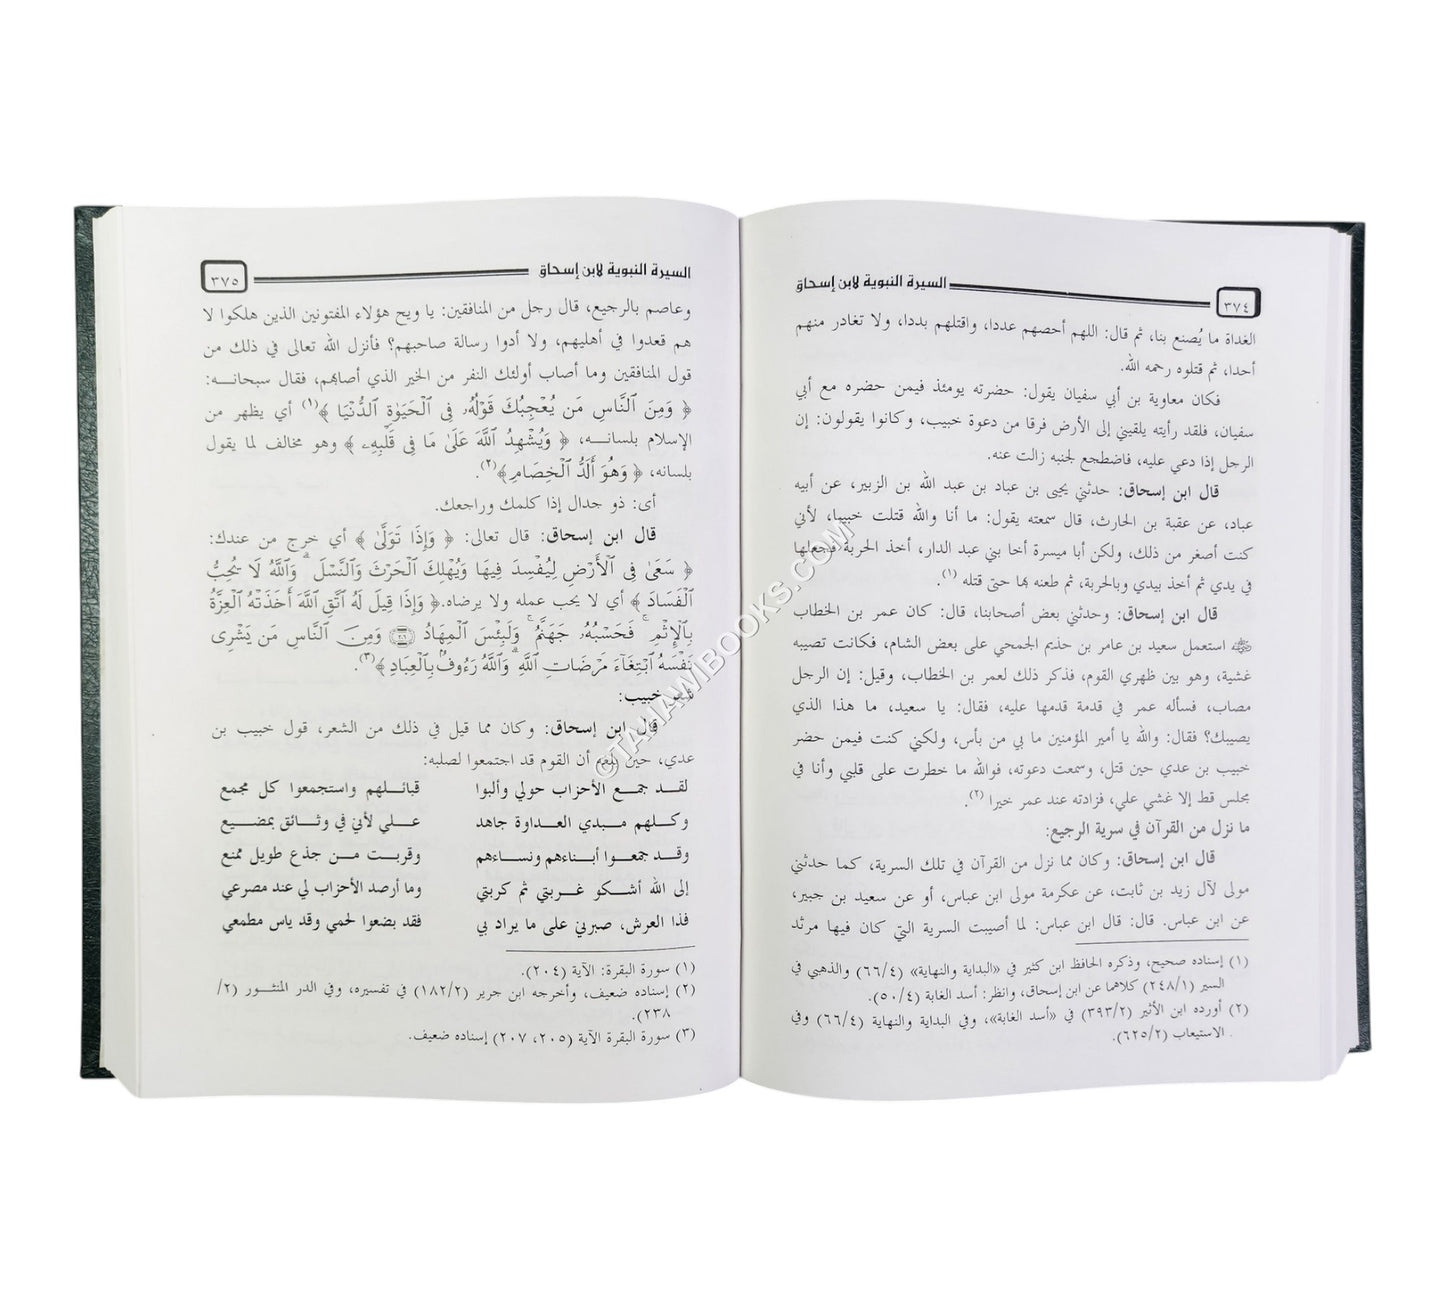 ٣٧٤ السيرة النبوية لابن إسحاق
الغداة ما يُصنع بنا، ثم قال: اللهم أحصهم عددا، واقتلهم بددا، ولا تغادر منهم
أحدا، ثم قتلوه رحمه الله.
فكان معاوية بن أبي سفيان يقول: حضرته يومئذ فيمن حضره مع أبي
سفيان، فلقد رأيته يلقيني إلى الأرض فرقا من دعوة خبيب، وكانوا يقولون: إن
الرجل إذا دعي عليه، فاضطجع لجنبه زالت عنه.
قال ابن إسحاق: حدثني يحيى بن عباد بن عبد الله بن الزبير، عن أبيه
عباد، عن عقبة بن الحارث، قال سمعته يقول: ما أنا والله قتلت خبيبا، لأني
كنت أصغر من ذلك، ولكن أبا ميسرة أخا بني عبد الدار، أخذ الحربة فجعلها
في يدي ثم أخذ بيدي وبالحربة، ثم طعنه بها حتى قتله (١).
قال ابن إسحاق: وحدثني بعض أصحابنا، قال: كان عمر بن الخطاب
استعمل سعيد بن عامر بن حذيم الجمحي على بعض الشام، فكانت تصيبه
غشية، وهو بين ظهري القوم، فذكر ذلك لعمر بن الخطاب، وقيل: إن الرجل
مصاب، فسأله عمر في قدمة قدمها عليه، فقال: يا سعيد، ما هذا الذي
يصيبك؟ فقال: والله يا أمير المؤمنين ما بي من بأس، ولكني كنت فيمن حضر
خبيب بن عدي حين قتل، وسمعت دعوته، فوالله ما خطرت على قلبي وأنا في
مجلس قط إلا غشي علي، فزادته عند عمر خيرا (٢).
ما نزل من القرآن في سرية الرجيع:
قال ابن إسحاق: وكان مما نزل من القرآن في تلك السرية، كما حدثني
مولى لآل زيد بن ثابت، عن عكرمة مولى ابن عباس، أو عن سعيد بن جبير،
عن ابن عباس. قال: قال ابن عباس: لما أصيبت السرية التي كان فيها مرثد
(١) إسناده صحيح، وذكره الحافظ ابن كثير في «البداية والنهاية» (٦٦/٤) والذهبي في
السير (٢٤٨/١) كلاهما عن ابن إسحاق، وانظر: أسد الغابة (٥٠/٤).
(٢) أورده ابن الأثير (٣٩٣/٢) في «أسد الغابة»، وفي البداية والنهاية (٦٦/٤) وفي
الاستيعاب (٦٢٥/٢).
السيرة النبوية لابن إسحاق ٣٧٥
وعاصم بالرجيع، قال رجل من المنافقين: يا ويح هؤلاء المفتونين الذين هلكوا لا
هم قعدوا في أهليهم، ولا أدوا رسالة صاحبهم؟ فأنزل الله تعالى في ذلك من
قول المنافقين وما أصاب أولئك النفر من الخير الذي أصابهم، فقال سبحانه:
﴿ وَمِنَ ٱلنَّاسِ مَن يُعْجِبُكَ قَوْلُهُۥ فِى ٱلْحَيَوٰةِ ٱلدُّنْيَا ﴾(١) أي يظهر من
الإسلام بلسانه، ﴿ وَيُشْهِدُ ٱللَّهَ عَلَىٰ مَا فِى قَلْبِهِۦ ﴾ وهو مخالف لما يقول
بلسانه، ﴿ وَهُوَ أَلَدُّ ٱلْخِصَامِ﴾(٢).
أى: ذو جدال إذا كلمك وراجعك.
قال ابن إسحاق: قال تعالى: ﴿ وَإِذَا تَوَلَّىٰ ﴾ أي خرج من عندك:
﴿ سَعَىٰ فِى ٱلْأَرْضِ لِيُفْسِدَ فِيهَا وَيُهْلِكَ ٱلْحَرْثَ وَٱلنَّسْلَ ۗ وَٱللَّهُ لَا يُحِبُّ
ٱلْفَسَادَ ﴾ أي لا يحب عمله ولا يرضاه.﴿ وَإِذَا قِيلَ لَهُ ٱتَّقِ ٱللَّهَ أَخَذَتْهُ ٱلْعِزَّةُ
بِٱلْإِثْمِ ۚ فَحَسْبُهُۥ جَهَنَّمُ ۚ وَلَبِئْسَ ٱلْمِهَادُ ۝٢٠٦ وَمِنَ ٱلنَّاسِ مَن يَشْرِى
نَفْسَهُ ٱبْتِغَآءَ مَرْضَاتِ ٱللَّهِ ۗ وَٱللَّهُ رَءُوفٌۢ بِٱلْعِبَادِ ﴾(٣).
خبيب:
قال ابن إسحاق: وكان مما قيل في ذلك من الشعر، قول خبيب بن
عدي، حين بلغه أن القوم قد اجتمعوا لصلبه:
لقد جمع الأحزاب حولي وألبوا قبائلهم واستجمعوا كل مجمع
وكلهم مبدي العداوة جاهد علي لأني في وثائق بمضيع
وقد جمعوا أبناءهم ونساءهم وقربت من جذع طويل ممنع
إلى الله أشكو غربتي ثم كربتي وما أرصد الأحزاب لي عند مصرعي
فذا العرش، صبرني على ما يراد بي فقد بضعوا لحمي وقد ياس مطمعي
(١) سورة البقرة: الآية (٢٠٤).
(٢) إسناده ضعيف، وأخرجه ابن جرير (١٨٢/٢) في تفسيره، وفي الدر المنثور (٢/
٢٣٨).
(٣) سورة البقرة الآية (٢٠٥، ٢٠٧) إسناده ضعيف.